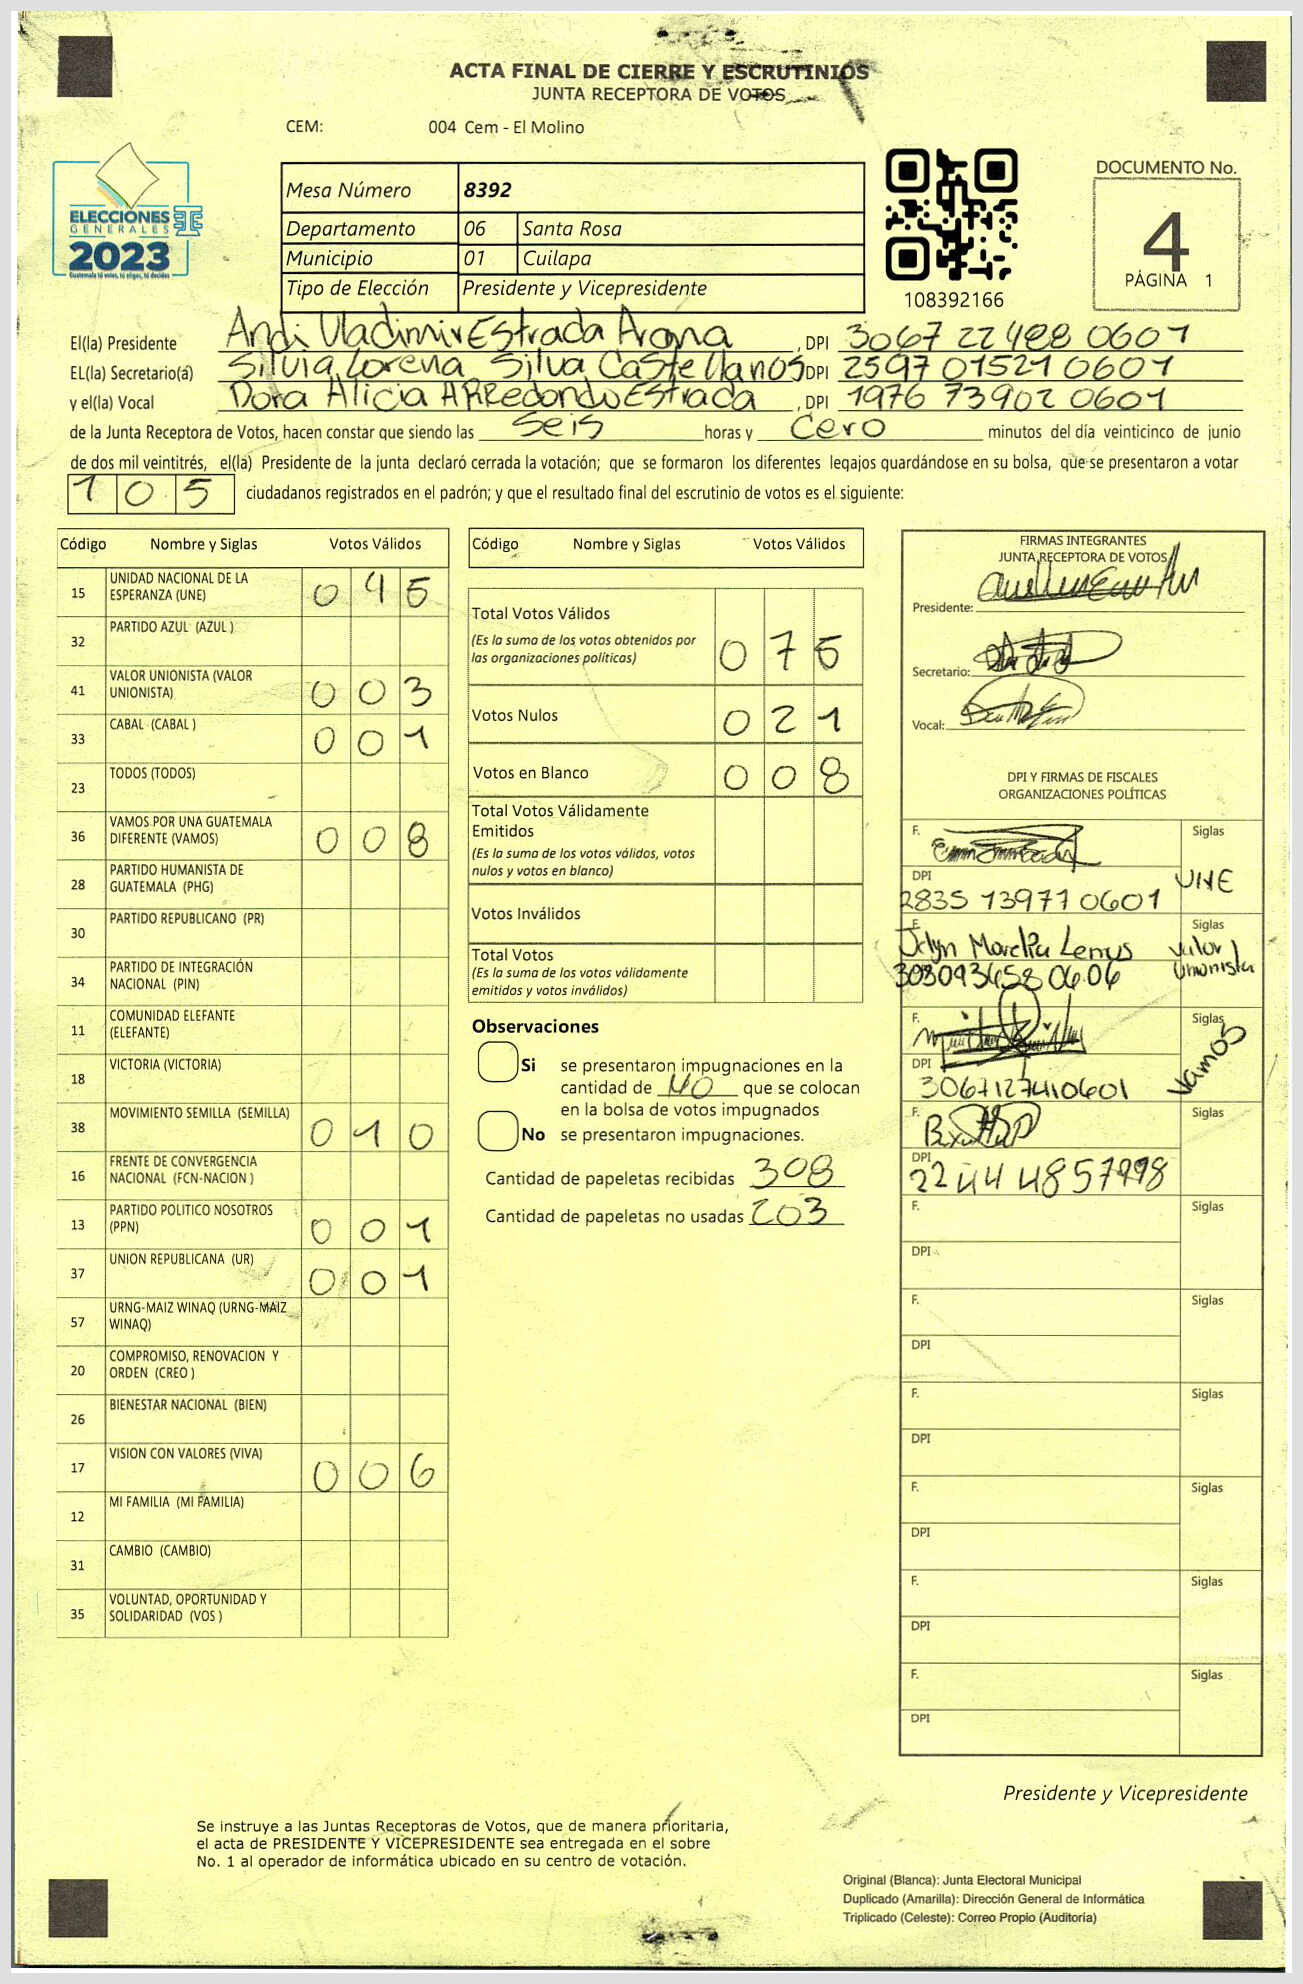 ACTA FINAL DE CIERRE Y ESCRUTINIOS
JUNTA RECEPTORA DE VOTOS
CEM: 004 Cem - El Molino
ELECCIONES
GENERALES
2023
Guatemala tú votas, tú eliges, tú decides
Mesa Número 8392
Departamento 06 Santa Rosa
Municipio 01 Cuilapa
Tipo de Elección Presidente y Vicepresidente
108392166
DOCUMENTO No.
4
PÁGINA 1
El(la) Presidente Andi Vladimir Estrada Arana, DPI 3067 22488 0601
EL(la) Secretario(a) Silvia Lorena Silva Castellanos DPI 2597 01521 0601
y el(la) Vocal Dora Alicia ARRedondo Estrada, DPI 1976 73902 0601
de la Junta Receptora de Votos, hacen constar que siendo las Seis horas y Cero minutos del día veinticinco de junio
de dos mil veintitrés, el(la) Presidente de la junta declaró cerrada la votación; que se formaron los diferentes legajos quardándose en su bolsa, que se presentaron a votar
105 ciudadanos registrados en el padrón; y que el resultado final del escrutinio de votos es el siguiente:
Código Nombre y Siglas Votos Válidos
15 UNIDAD NACIONAL DE LA ESPERANZA (UNE) 0 4 5
32 PARTIDO AZUL (AZUL )
41 VALOR UNIONISTA (VALOR UNIONISTA) 0 0 3
33 CABAL (CABAL ) 0 0 1
23 TODOS (TODOS)
36 VAMOS POR UNA GUATEMALA DIFERENTE (VAMOS) 0 0 8
28 PARTIDO HUMANISTA DE GUATEMALA (PHG)
30 PARTIDO REPUBLICANO (PR)
34 PARTIDO DE INTEGRACIÓN NACIONAL (PIN)
11 COMUNIDAD ELEFANTE (ELEFANTE)
18 VICTORIA (VICTORIA)
38 MOVIMIENTO SEMILLA (SEMILLA) 0 1 0
16 FRENTE DE CONVERGENCIA NACIONAL (FCN-NACION )
13 PARTIDO POLITICO NOSOTROS (PPN) 0 0 1
37 UNION REPUBLICANA (UR) 0 0 1
57 URNG-MAIZ WINAQ (URNG-MAIZ WINAQ)
20 COMPROMISO, RENOVACION Y ORDEN (CREO )
26 BIENESTAR NACIONAL (BIEN)
17 VISION CON VALORES (VIVA) 0 0 6
12 MI FAMILIA (MI FAMILIA)
31 CAMBIO (CAMBIO)
35 VOLUNTAD, OPORTUNIDAD Y SOLIDARIDAD (VOS )
Código Nombre y Siglas Votos Válidos
Total Votos Válidos 0 7 5
(Es la suma de los votos obtenidos por
las organizaciones políticas)
Votos Nulos 0 2 1
Votos en Blanco 0 0 8
Total Votos Válidamente
Emitidos
(Es la suma de los votos válidos, votos
nulos y votos en blanco)
Votos Inválidos
Total Votos
(Es la suma de los votos válidamente
emitidos y votos inválidos)
Observaciones
Si se presentaron impugnaciones en la
cantidad de NO que se colocan
en la bolsa de votos impugnados
No se presentaron impugnaciones.
Cantidad de papeletas recibidas 308
Cantidad de papeletas no usadas 203
FIRMAS INTEGRANTES
JUNTA RECEPTORA DE VOTOS
Presidente:
Secretario:
Vocal:
DPI Y FIRMAS DE FISCALES
ORGANIZACIONES POLÍTICAS
F. Siglas
DPI UNE
2835 13977 0601
F. Siglas
Lemus Valor
303093658 0606 Unionista
F. Siglas
DPI Vamos
3067127410601
F. Siglas
DPI
F. Siglas
DPI
F. Siglas
DPI
F. Siglas
DPI
F. Siglas
DPI
F. Siglas
DPI
F. Siglas
DPI
Presidente y Vicepresidente
Se instruye a las Juntas Receptoras de Votos, que de manera prioritaria,
el acta de PRESIDENTE Y VICEPRESIDENTE sea entregada en el sobre
No. 1 al operador de informática ubicado en su centro de votación.
Original (Blanca): Junta Electoral Municipal
Duplicado (Amarilla): Dirección General de Informática
Triplicado (Celeste): Correo Propio (Auditoría)